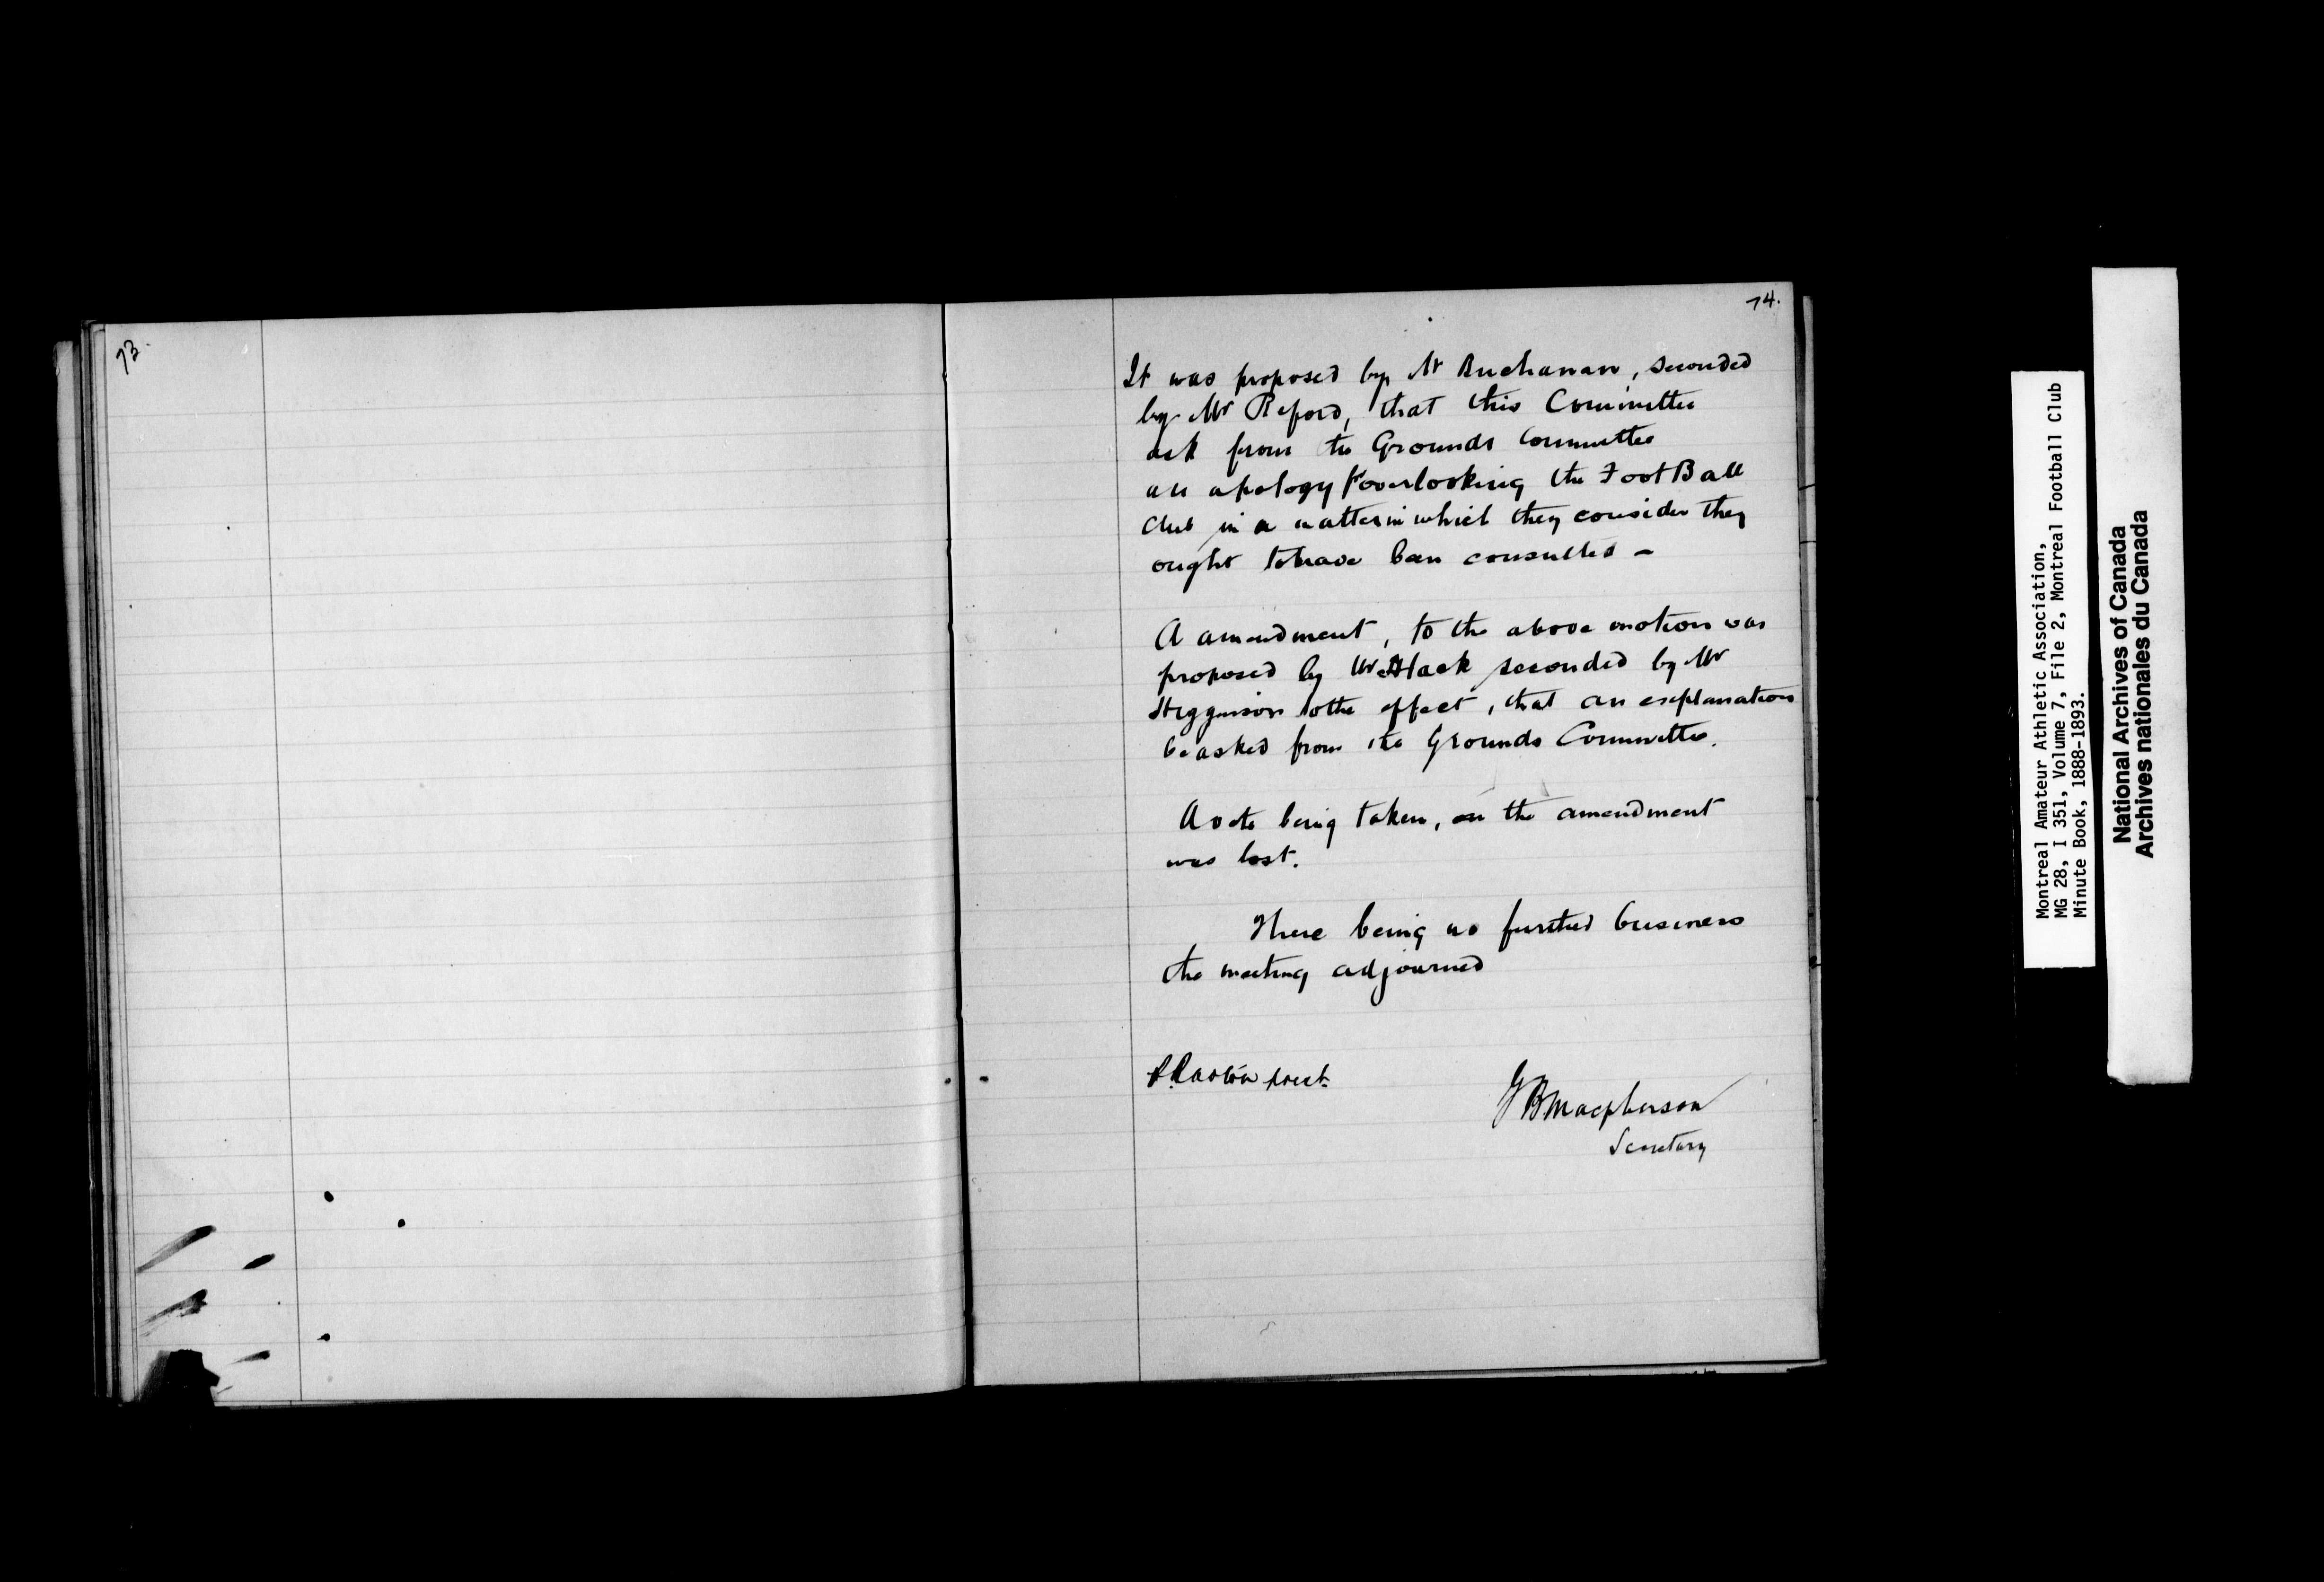 73.
74.
It was proposed by Mr Buchanan, seconded
by Mr Reford, that this Committee
ask from the Grounds Committee
an apology overlooking the Foot Ball
Club in a matter in which they consider they
ought to have been consulted -
A amendment, to the above motion was
proposed by Mr Black seconded by Mr
Higginson to the effect, that an explanation
be asked from the Grounds Committee.
A vote being taken, on the amendment
was lost.
There being no further business
the meeting adjourned
Prest.
JB Macpherson
Secretary
Montreal Amateur Athletic Association,
MG 28, I 351, Volume 7, File 2, Montreal Football Club
Minute Book, 1888-1893.
National Archives of Canada
Archives nationales du Canada